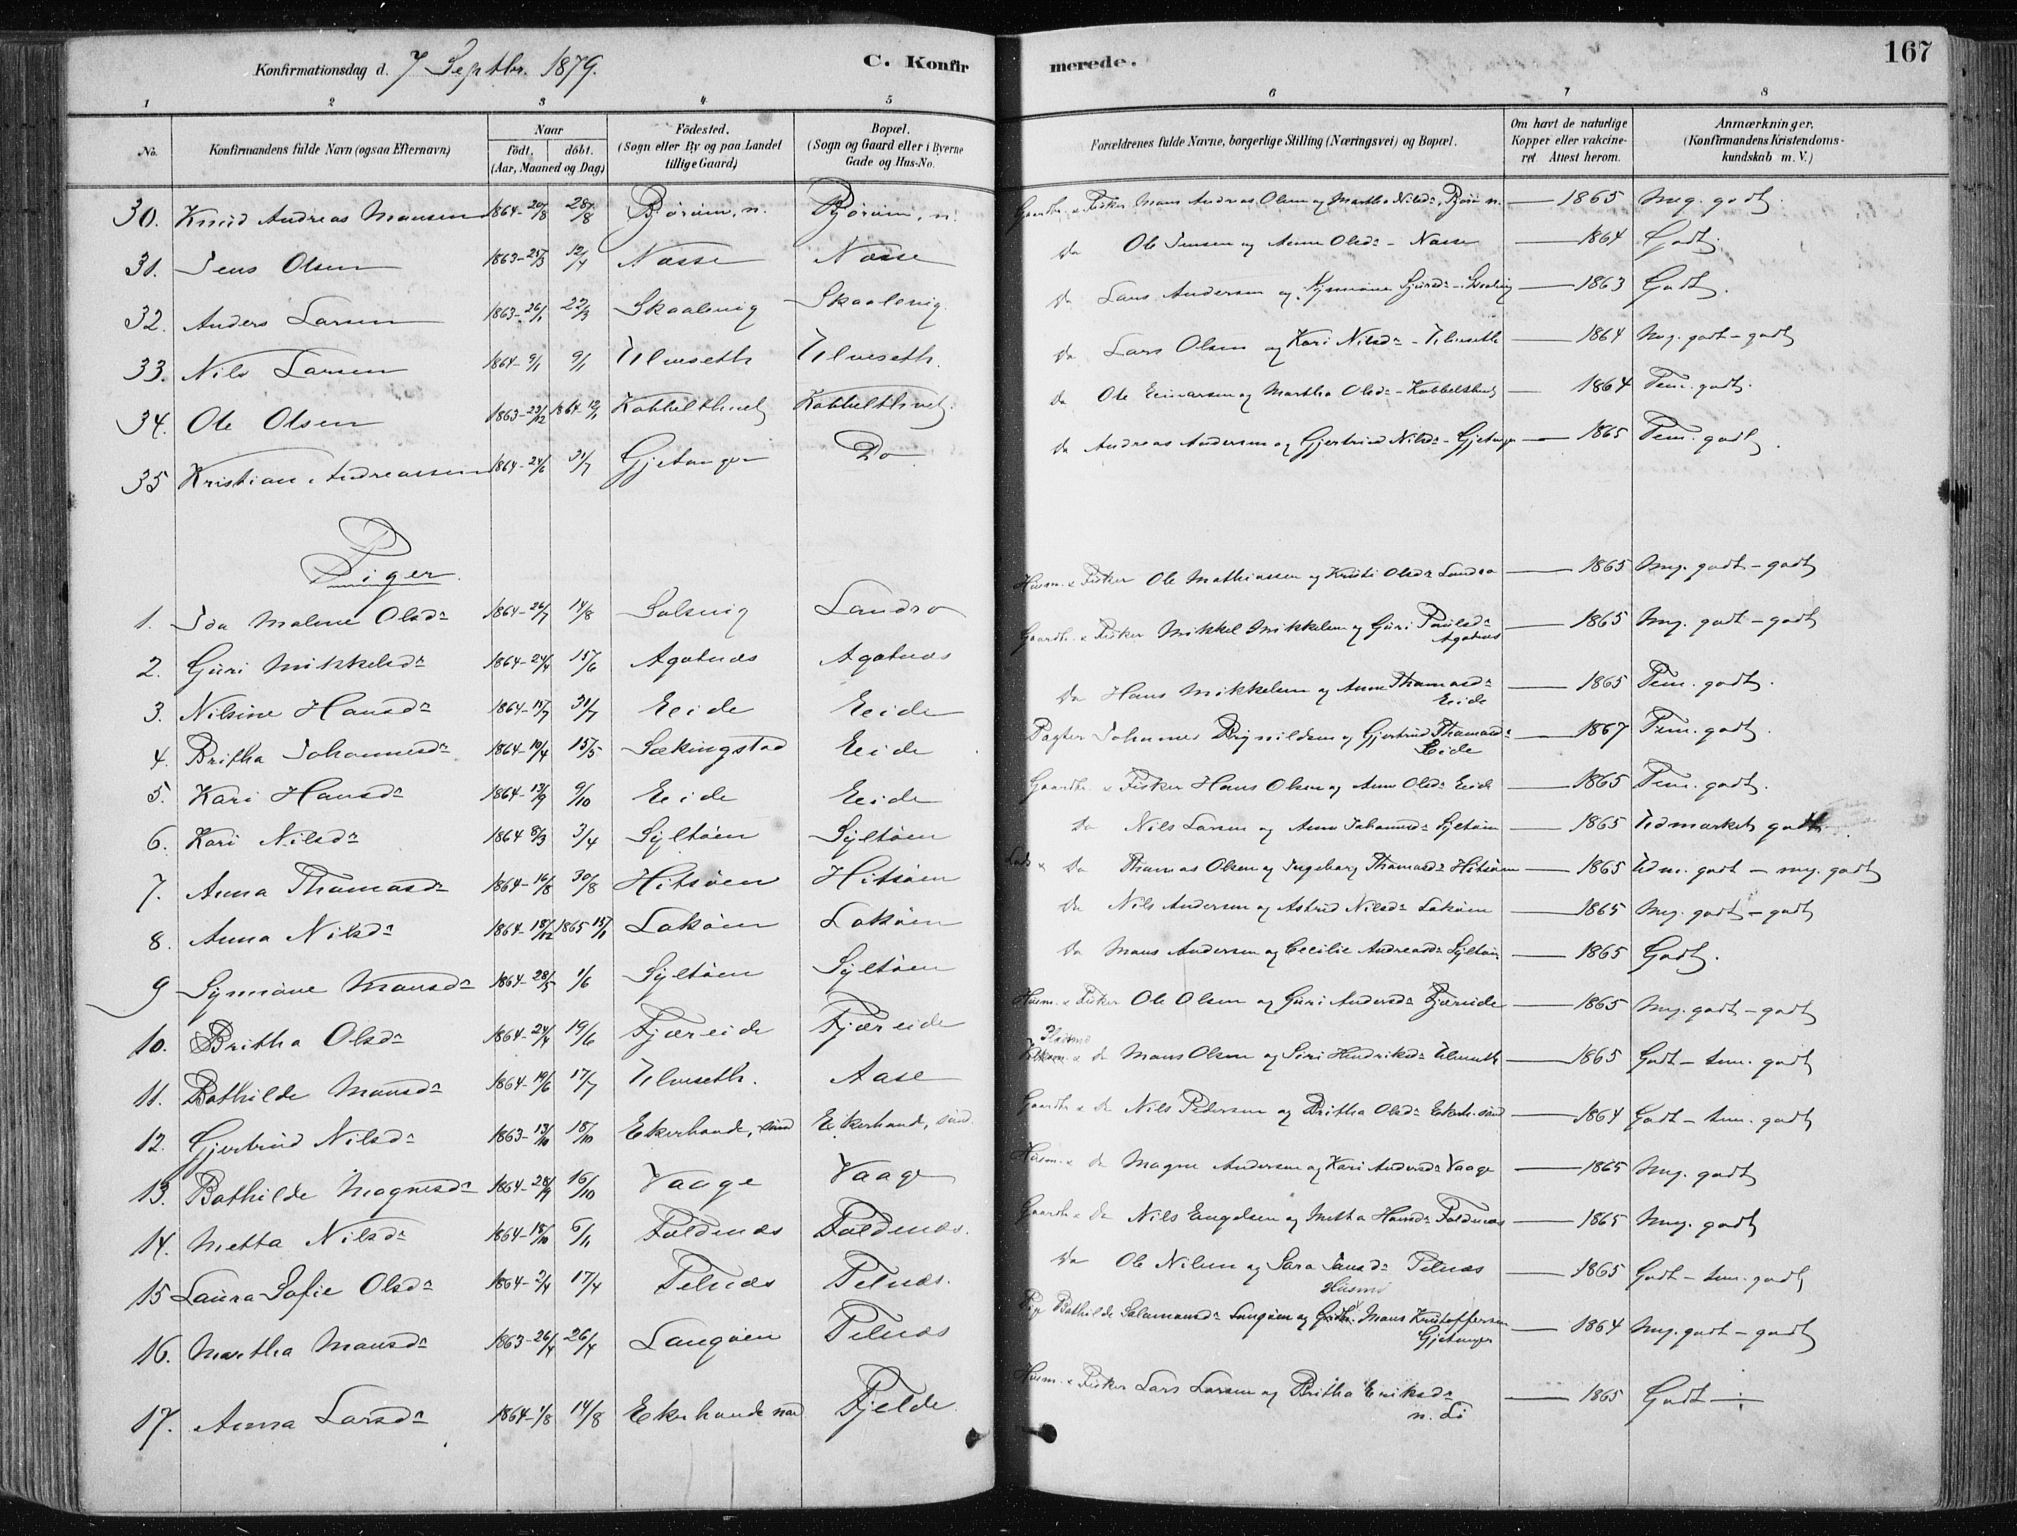 Konfirmationsdag d. 7 Septbr. 1879. C. Konfirmerede. 167
1 2 3 4 5 6 7 8
No. Konfirmandens fulde Navn (ogsaa Efternavn) Naar Födt, döbt. (Aar, Maaned og Dag) Födested. (Sogn eller By og paa Landet tillige Gaard) Bopæl. (Sogn og Gaard eller i Byerne Gade og Hus-No. Forældrenes fulde Navne, borgerlige Stilling (Næringsvei) og Bopæl. Om havt de naturlige Kopper eller vakcineret. Attest herom. Anmærkninger. (Konfirmandens Kristendomskundskab m. V.)
30. Knud Andreas Mansen 1864-20/8 28/8 Bjorøen, n. Bjorøen, n. Gaardbr. & Fisker Mans Andreas Olsen og Martha Nilsdr. Bjorø n. — 1865 Mg. godt.
31. Jens Olsen 1863-25/3 12/4 Næsse Næsse Do Ole Jensen og Anne Olsdr - Næsse — 1864 Godt.
32. Anders Larsen 1863-26/1 22/3 Skaalevig Skaalevig Do Lars Andersen og — 1863 Godt.
33. Nils Larsen 1864-9/1 9/1 Ulveseth Ulveseth. Do Lars Olsen og Kari Nilsdr - Ulveseth — 1864 Mg. godt - godt
34. Ole Olsen 1863-23/12 1864 12/1 Kobbelthvet Kobbelthvet. Do Ole Einarsen og Martha Olsdr - Kobbelthvet — 1864 Tem. godt.
35 Kristian Andreassen 1864-24/6 31/7 Gjetanger Do Do Andreas Andersen og Gjertrud Nilsdr - Gjetanger — 1865 Tem. godt.
Piger.
1. Ida Malene Olsdr 1864-26/7 14/8 Solsvig Landro Husm. & Fisker Ole Mathiassen og Kristi Olsdr Landro — 1865 Mg. godt - godt
2. Guri Mikkelsdr 1864-24/4 15/6 Agotnæs Agotnæs Gaardbr. & Fisker Mikkel Mikkelsen og Guri Poulsdr Agotnæs — 1865 Mg. godt - godt
3. Nilsine Hansdr 1864-15/7 31/7 Eeide Eeide Do Hans Mikkelsen og Anne Thomasdr Eeide — 1865 Tem. godt.
4. Britha Johannesdr 1864-19/4 15/5 Sækingstad Eeide Pagter Johannes Brynildsen og Gjertrud Thomasdr Eeide — 1867 Tem. godt.
5. Kari Hansdr 1864-13/9 9/10 Eeide Eeide Gaardbr. & Fisker Hans Olsen og Anne Olsdr Eeide — 1865 Tem. godt.
6. Kari Nilsdr 1864 8/3 3/4 Syltøen Syltøen Do Nils Larsen og Anne Johannesdr Syltøen — 1865 Udmærket godt
7. Anna Thomasdr 1864-16/8 30/8 Hitsøen Hitsøen & Do Thomas Olsen og Ingeborg Thomasdr Hitsøen — 1865 Udm. godt - mg. godt
8. Anna Nilsdr 1864-18/12 1865 15/1 Lokøen Lokøen Do Nils Andersen og Astrid Nilsdr Lokøen — 1865 Mg. godt - godt
9 Synnøve Mansdr 1864-28/5 1/6 Syltøen Syltøen Do Mans Andersen og Cecilie Andreasdr Syltøen — 1865 Godt.
10. Britha Olsdr 1864-24/4 19/6 Fjæreide Fjæreide Husm. & Fisker Ole Olsen og Guri Andersdr Fjæreide — 1865 Mg. godt - godt
11. Bothilde Mansdr 1864-19/6 17/7 Ulveseth. Aase & do Mans Olsen og Siri Hendriksdr Ulveseth — 1865 Godt - tem. godt
12. Gjertrud Nilsdr 1863-13/10 18/10 Ekerhovde, sønd Ekerhovd, sønd. Gaardbr & do Nils Pedersen og Britha Olsdr Ekerh. sønd — 1864 Godt - tem. godt
13. Bothilde Magnesdr 1864-28/9 16/10 Vaage Vaage Husm. & do Magne Andersen og Kari Andersdr Vaage — 1865 Mg. godt
14. Metta Nilsdr 1864-15/10 6/11 Foldnæs Foldnæs. Gaardbr & Do Nils Engelsen og Metta Hansdr Foldnæs — 1865 Mg. godt
15 Laura Sofie Olsdr 1864-2/4 17/4 Telnæs Telnæs. Do Ole Nilsen og Sara Jansdr Telnæs — 1865 Godt - tem. godt
16. Martha Mansdr 1863-26/4 26/4 Langøen Telnæs Pige Bothilde Salamonsdr Langøen og Husmd Mans Kristoffersen Gjetanger — 1864 Mg. godt - godt
17. Anna Larsdr 1864-1/8 14/8 Ekerhovde nord Fjelde. Husm. & Fisker Lars Larsen og Britha Eriksdr — 1865 Godt -